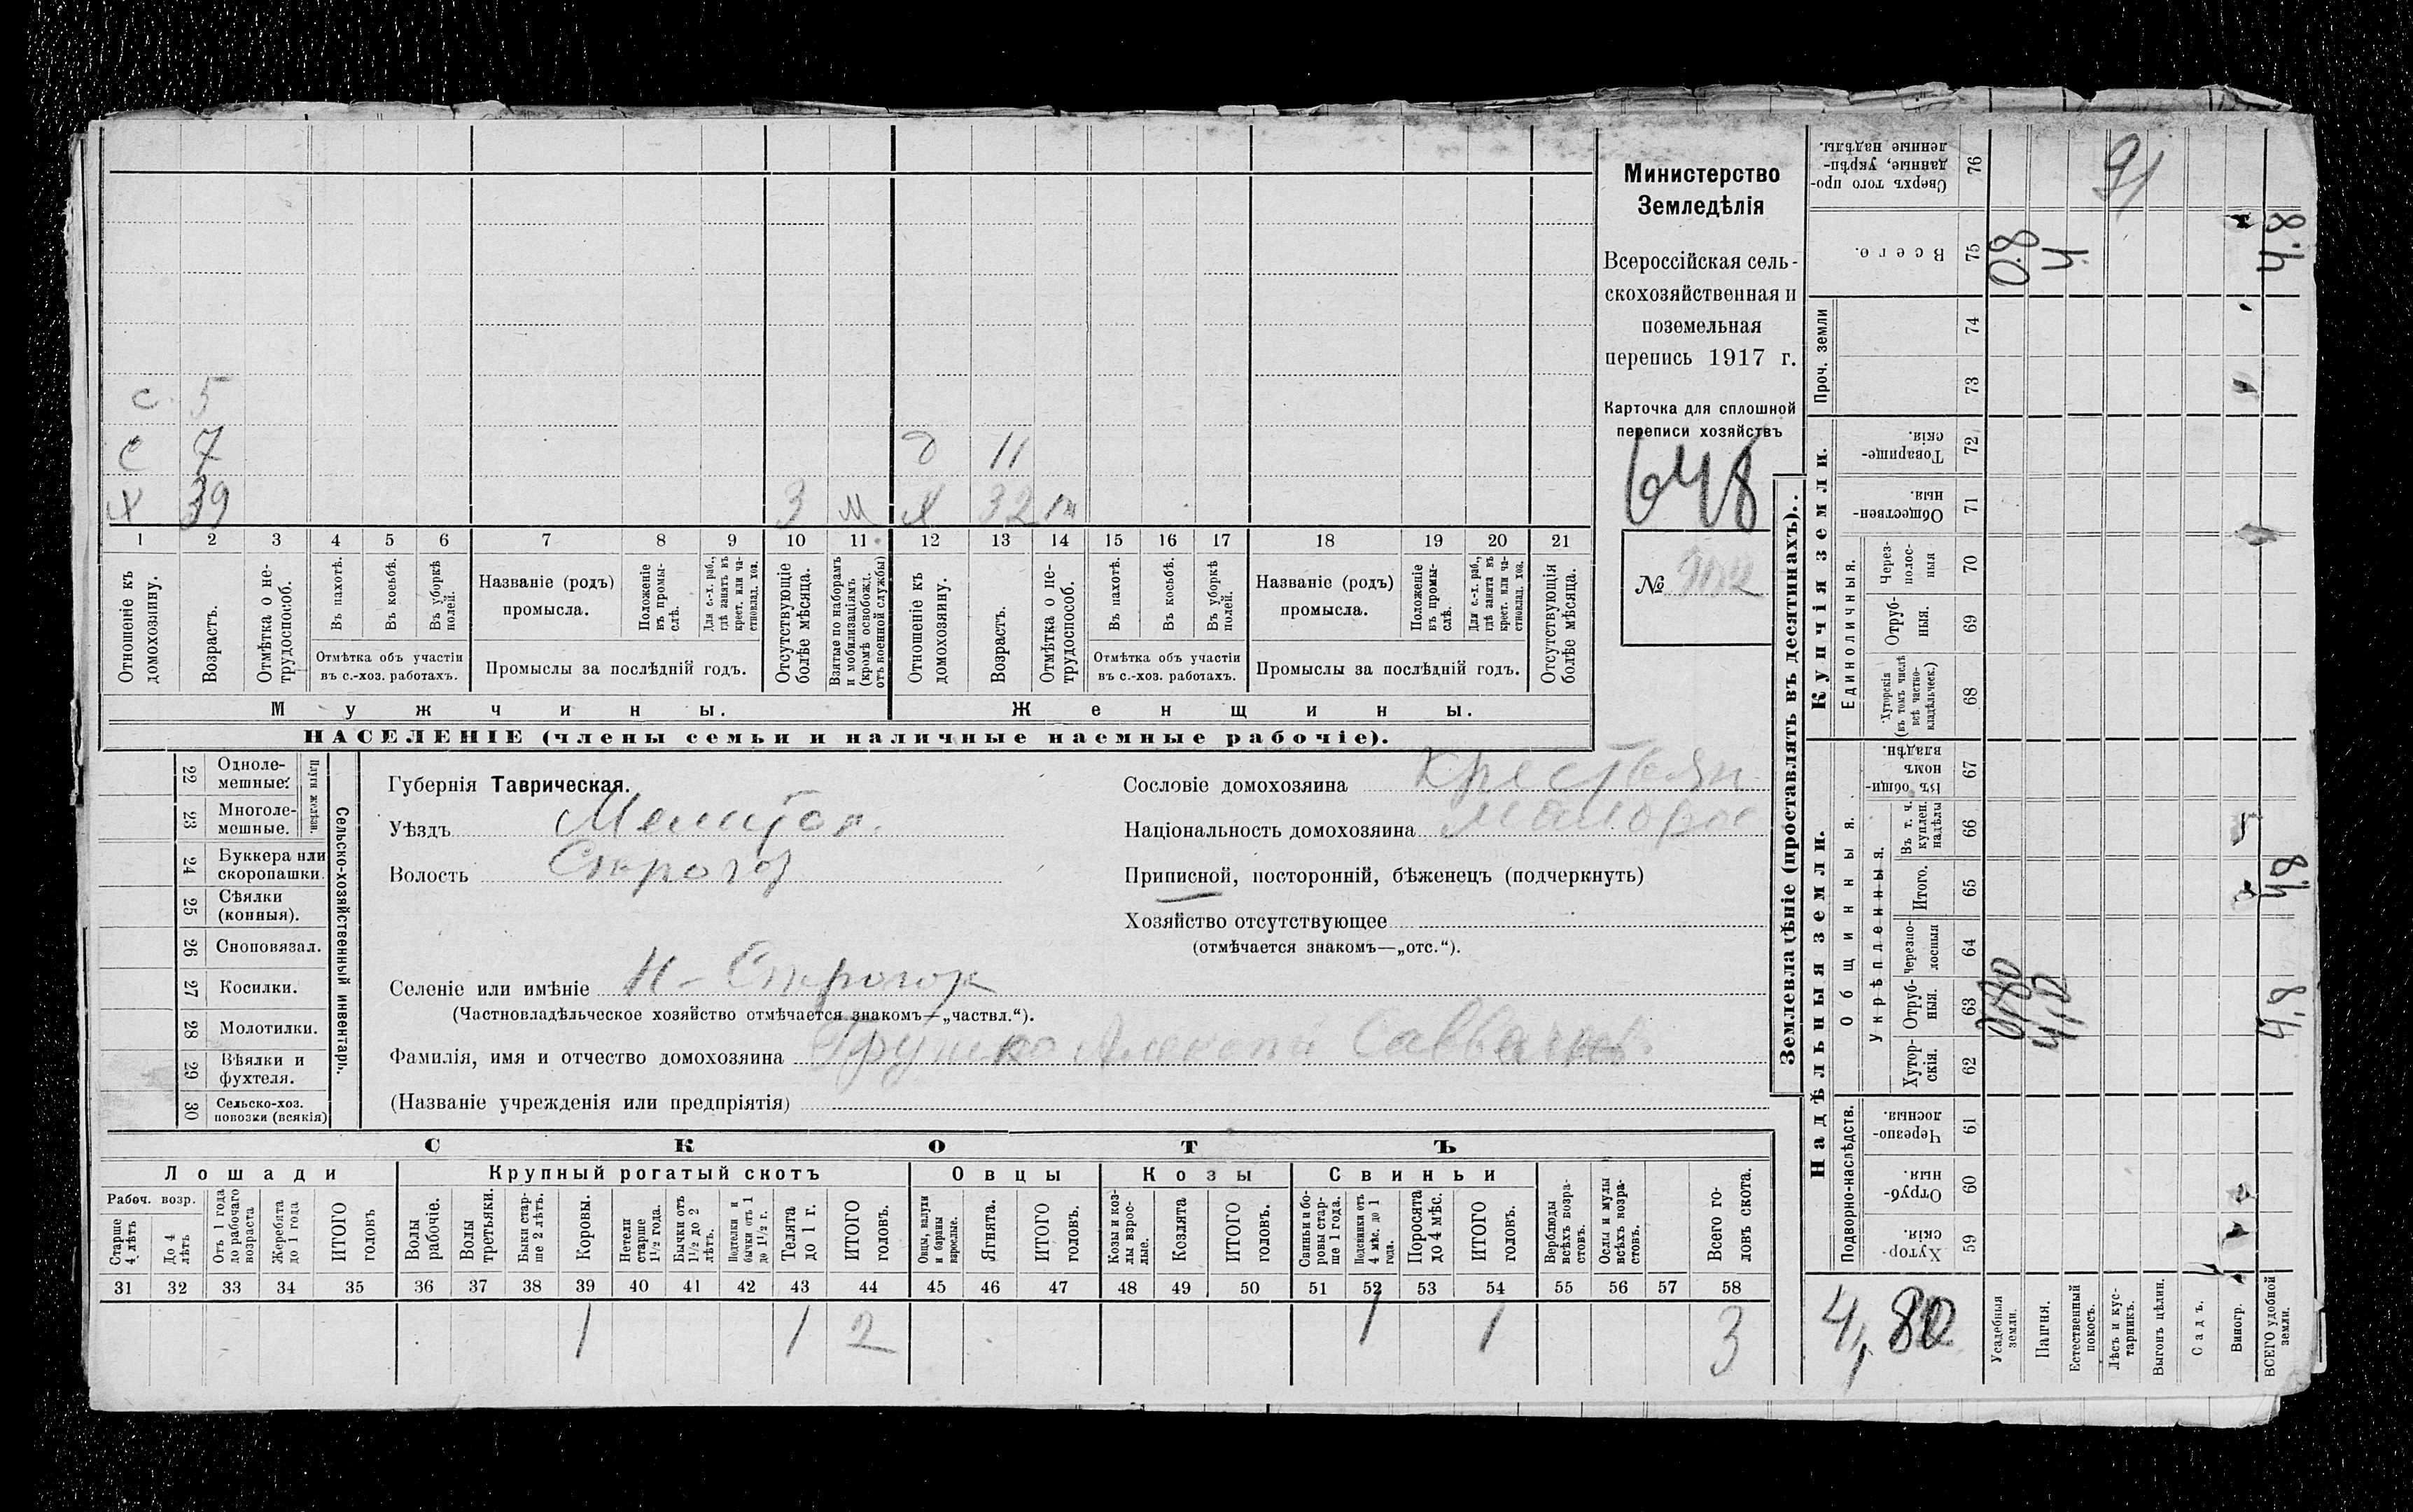 Министерство
Земледѣлія
Всероссійская сель-
скохозяйственная и
поземельная
перепись 1917 г.
Карточка для сплошной
переписи хозяйствъ
648
№
с 5
с 7 д 11
х 39 3 м х 32
1 2 3 4 5 6 7 8 9 10 11 12 13 14 15 16 17 18 19 20 21
Отношеніе къ домохозяину.
Возрастъ.
Отмѣтка о не-трудоспособ.
Въ пахотѣ.
Въ косьбѣ.
Въ уборкѣ полей.
Отмѣтка объ участіи въ с.-хоз. работахъ.
Названіе (родъ) промысла.
Положеніе въ промы-слѣ.
Для с.-х. раб., гдѣ занятъ въ крест. или ча-стновлад. хоз.
Промыслы за послѣдній годъ.
Отсутствующіе болѣе мѣсяца.
Взятые по наборамъ и мобилизаціямъ (кромѣ освобожд. отъ военной службы)
Отношеніе къ домохозяину.
Возрастъ.
Отмѣтка о не-трудоспособ.
Въ пахотѣ.
Въ косьбѣ.
Въ уборкѣ полей.
Отмѣтка объ участіи въ с.-хоз. работахъ.
Названіе (родъ) промысла.
Положеніе въ промы-слѣ.
Для с.-х. раб., гдѣ занята въ крест. или ча-стновлад. хоз.
Промыслы за послѣдній годъ.
Отсутствующія болѣе мѣсяца.
Мужчины. Женщины.
НАСЕЛЕНІЕ (члены семьи и наличные наемные рабочіе).
Сельско-хозяйственный инвентарь.
Плуги желѣзн.
22 Одноле-мешные.
23 Многоле-мешные.
24 Буккера или скоропашки.
25 Сѣялки (конныя).
26 Сноповязал.
27 Косилки.
28 Молотилки.
29 Вѣялки и фухтеля.
30 Сельско-хоз. повозки (всякія)
Губернія Таврическая.
Уѣздъ Мелитоп.
Волость Строгов
Сословіе домохозяина Крестьян
Національность домохозяина малорос
Приписной, посторонній, бѣженецъ (подчеркнуть)
Хозяйство отсутствующее
(отмѣчается знакомъ—„отс.“).
Селеніе или имѣніе Н-Строгов
(Частновладѣльческое хозяйство отмѣчается знакомъ—„частвл.“).
Фамилія, имя и отчество домохозяина
(Названіе учрежденія или предпріятія)
СКОТЪ
Лошади Крупный рогатый скотъ Овцы Козы Свиньи
Рабоч. возр.
Старше 4 лѣтъ
До 4 лѣтъ
Отъ 1 года до рабочаго возраста
Жеребята до 1 года
ИТОГО головъ
Волы рабочіе.
Волы третьяки.
Быки стар-ше 2 лѣтъ.
Коровы.
Нетели старше 1½ года.
Бычки отъ 1½ до 2 лѣтъ.
Подтелки и бычки отъ 1 до 1½ г.
Телята до 1 г.
ИТОГО головъ.
Овцы, валухи и бараны взрослые.
Ягнята.
ИТОГО головъ.
Козы и коз-лы взрос-лые.
Козлята
ИТОГО головъ.
Свиньи и бо-ровы стар-ше 1 года.
Подсвинки отъ 4 мѣс. до 1 года.
Поросята до 4 мѣс.
ИТОГО головъ.
Верблюды всѣхъ возра-стовъ.
Ослы и мулы всѣхъ возра-стовъ.
Всего го-ловъ скота.
31 32 33 34 35 36 37 38 39 40 41 42 43 44 45 46 47 48 49 50 51 52 53 54 55 56 57 58
1 1 2 1 1 3
Землевладѣніе (проставлять въ десятинахъ).
Надѣльныя земли.
Купчія земли.
Проч. земли
Подворно-наслѣдств.
Общинныя.
Укрѣпленныя.
Единоличныя.
Хутор-скія. 59
Отруб-ныя. 60
Черезпо-лосныя. 61
Хутор-скія. 62
Отруб-ныя. 63
Черезпо-лосныя 64
Итого. 65
Въ т. ч. куплен. надѣлы 66
Въ общин-номъ владѣн. 67
Хуторскія (въ томъ числѣ всѣ частно-владѣльческ.) 68
Отруб-ныя. 69
Через-полос-ныя 70
Обществен-ныя. 71
Товарище-скія. 72
73
74
Всего. 75
Сверхъ того про-данные, укрѣп-ленные надѣлы. 76
Усадебныя земли. 0,80 0.8
Пашня. 4,0 4
Естественный покосъ.
Лѣсъ и кус-тарникъ. 91
Выгонъ цѣлин.
Садъ.
Виногр.
ВСЕГО удобной земли. 4,8 4,8 4.8
4,80